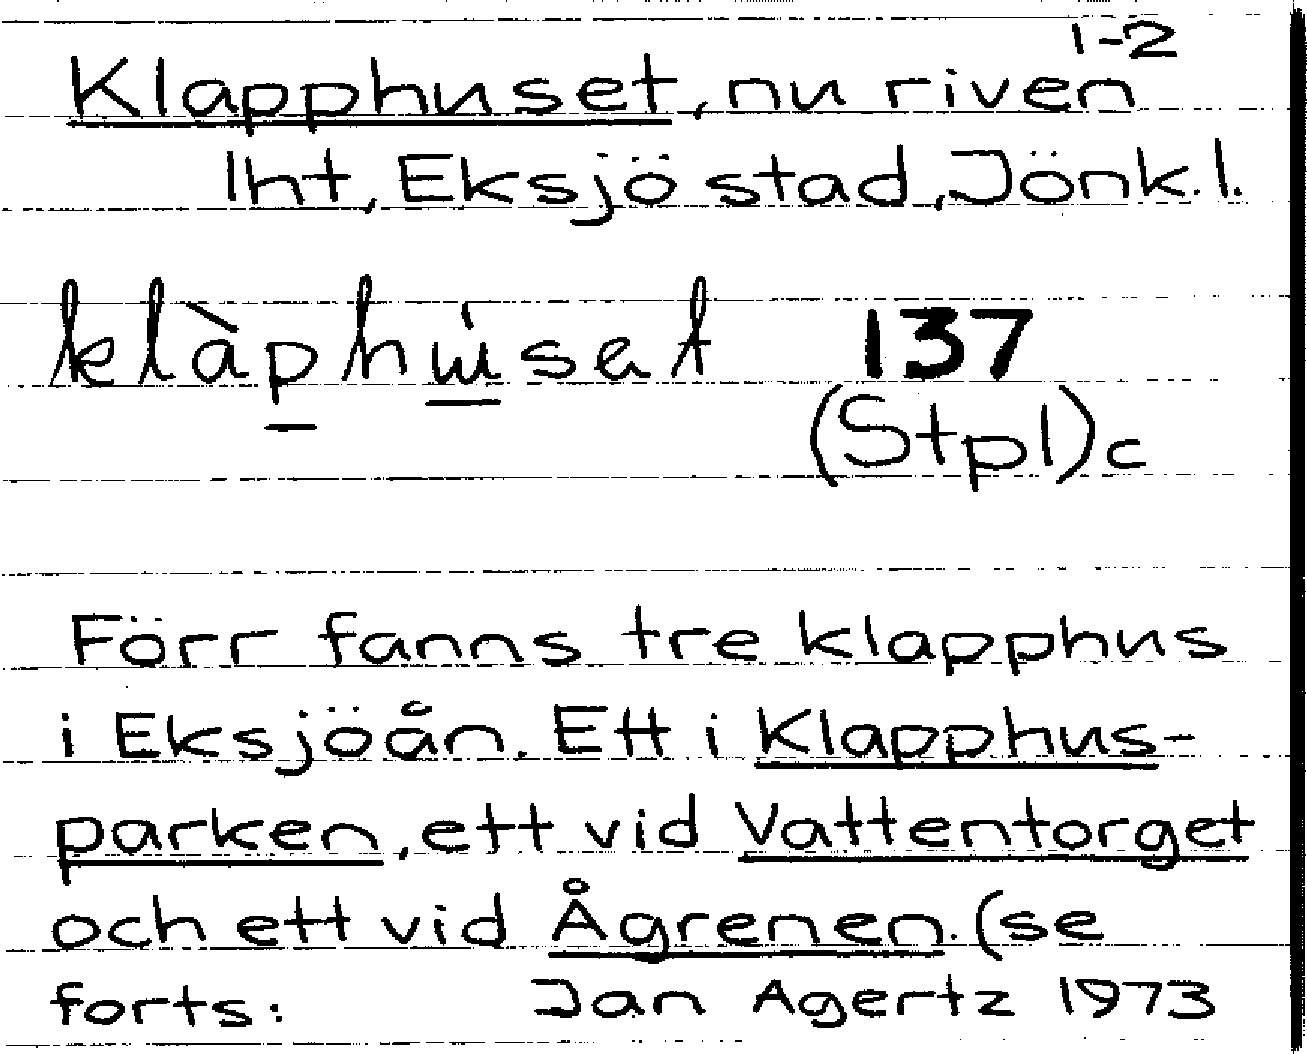 1-2
Klapphuset, nu riven
lht, Eksjö stad, Jönk. l.
klàphu̇set 137
(Stpl)c
Förr fanns tre klapphus
i Eksjöån. Ett i Klapphus-
parken, ett vid Vattentorget
och ett vid Ågrenen. (se
forts: Jan Agertz 1973